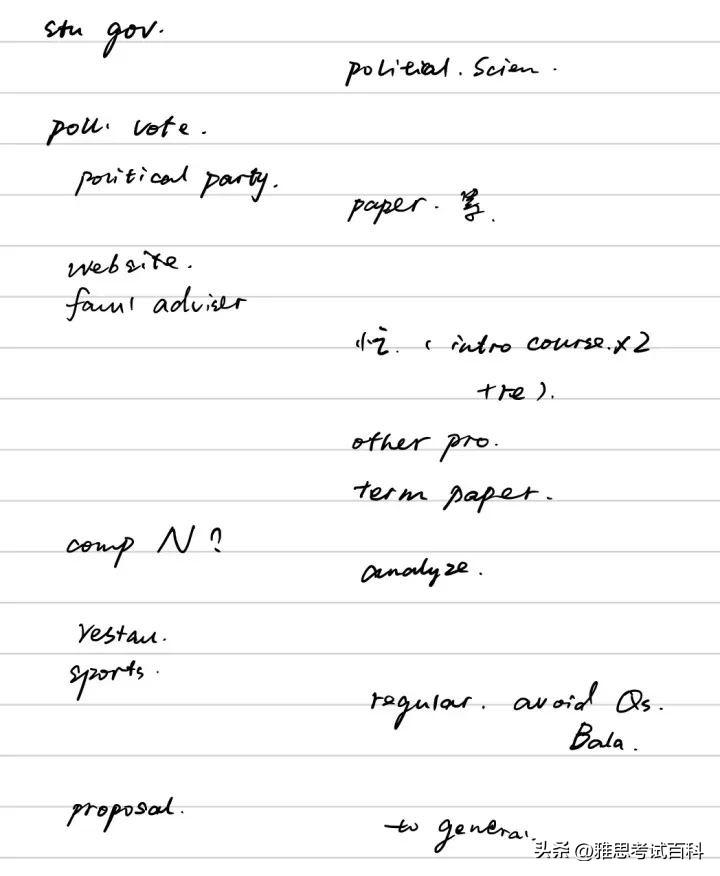 stu gov.
political. Scien.
poll. vote.
political party.
paper. 写.
website.
adviser
忙. ( intro course. x2
+re ).
other pro.
term paper.
comp N?
analyze.
restau.
sports.
regular. avoid Qs.
Bala.
proposal.
to general.
头条 @雅思考试百科